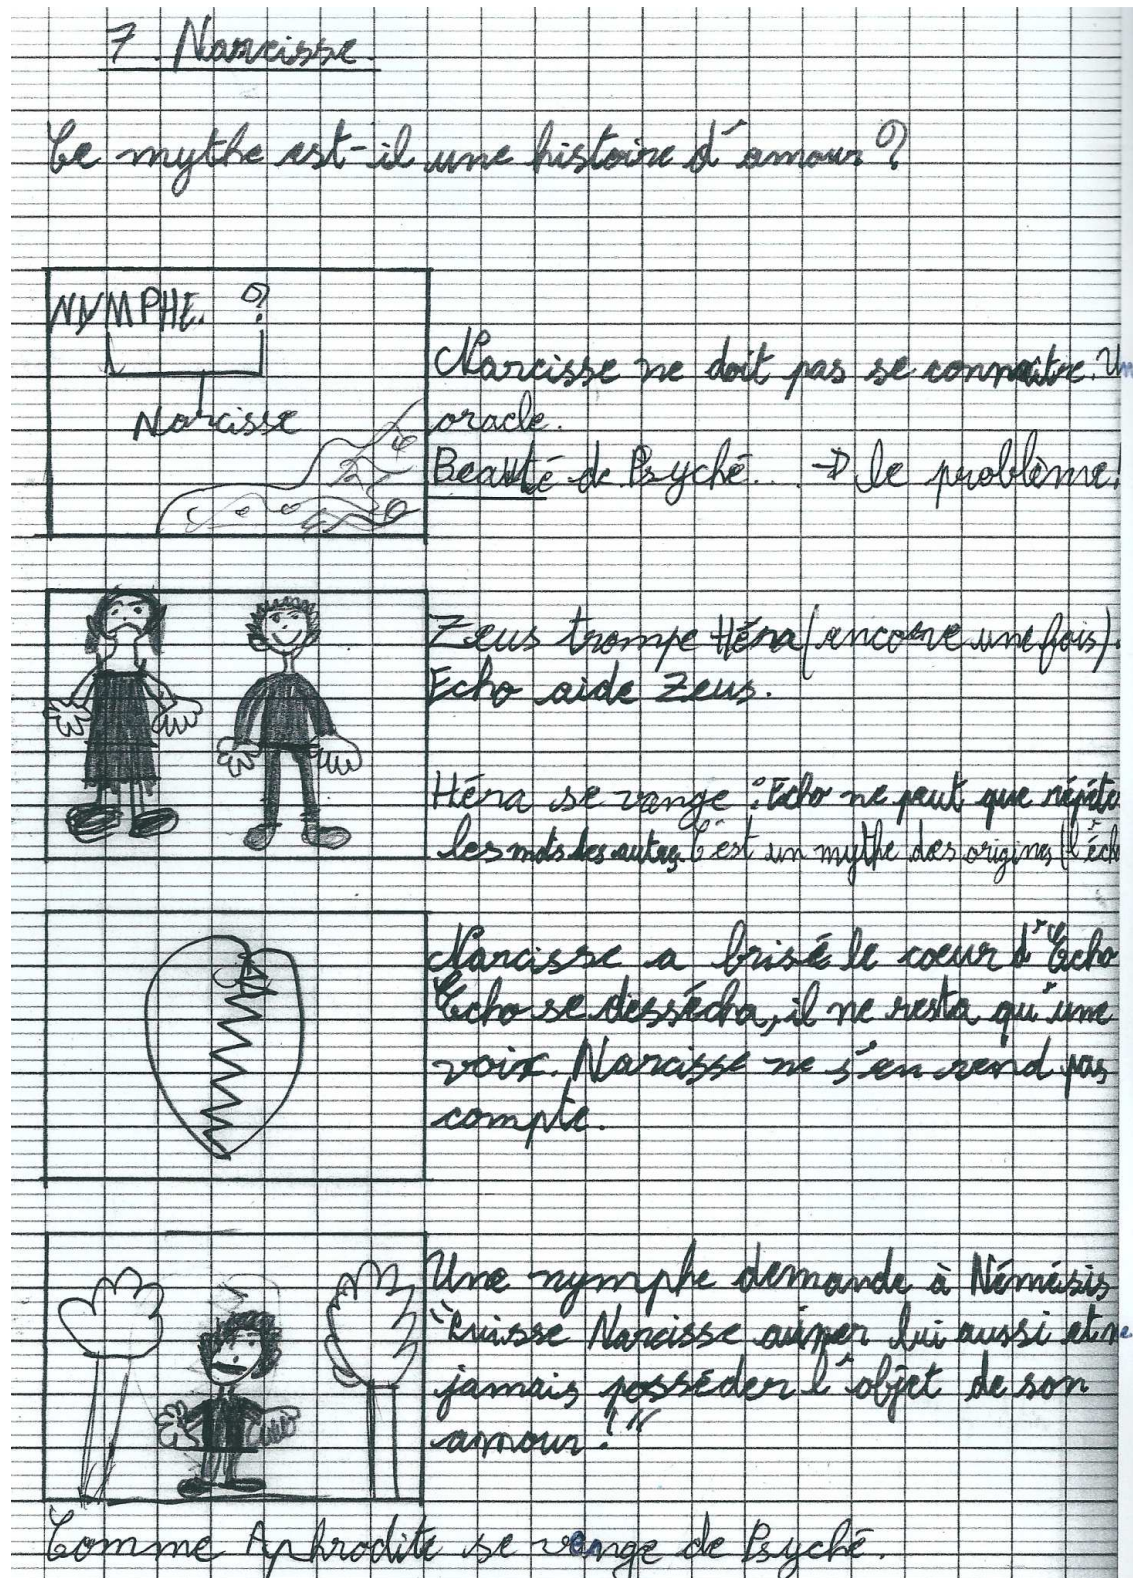 7. Narcisse
Ce mythe est-il une histoire d'amour ?
NYMPHE. ?
Narcisse
Narcisse ne doit pas se connaître. Un
oracle.
Beauté de Psyché... → le problème!
Zeus trompe Héra (encore une fois).
Echo aide Zeus.
Héra se vange : Echo ne peut que répéter
les mots des autres. C'est un mythe des origines (l'écho
Narcisse a brisé le coeur d'Echo
Echo se dessécha, il ne resta qu'une
voix. Narcisse ne s'en rend pas
compte.
Une nymphe demande à Némésis
"Puisse Narcisse aimer lui aussi et ne
jamais posséder l'objet de son
amour!"
Comme Aphrodite se venge de Psyché.